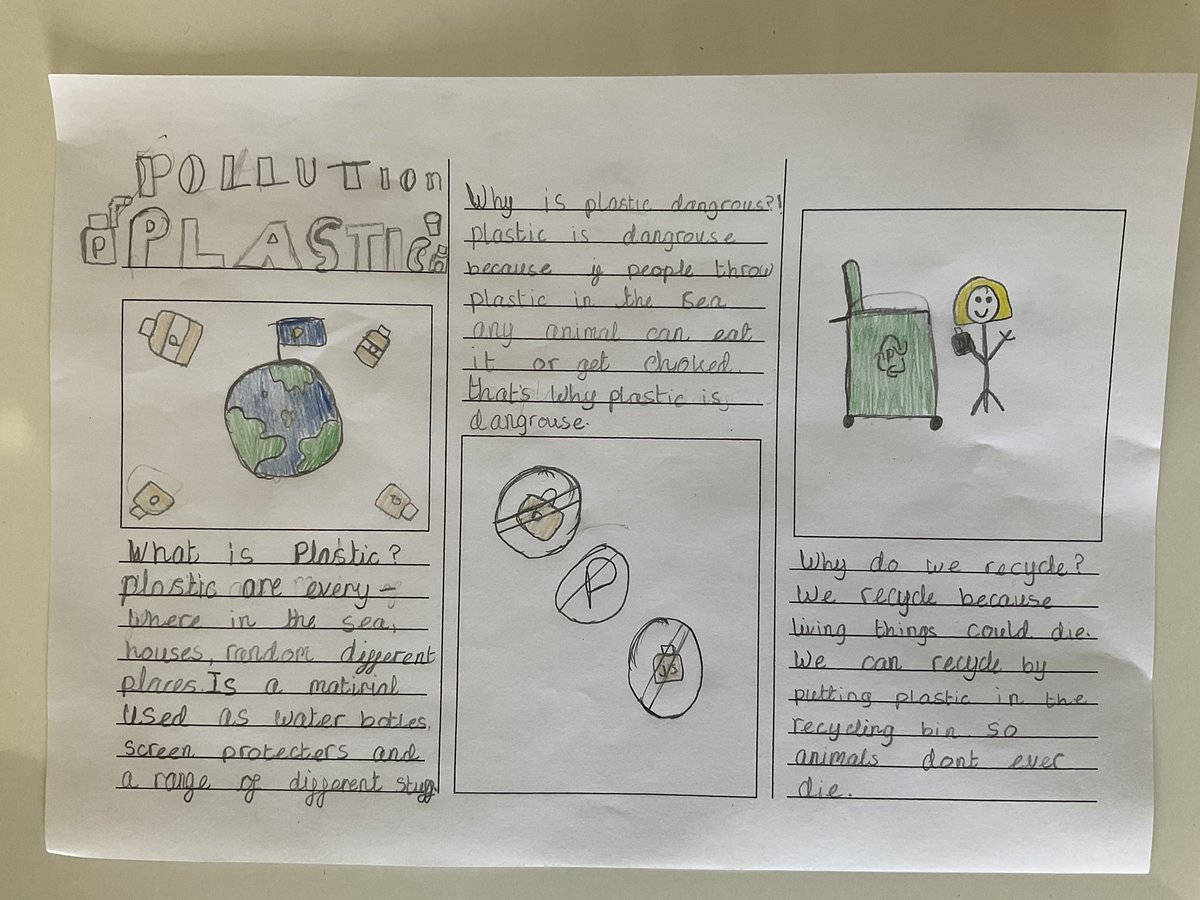 POLLUTION
P PLASTIC
P
P
O
What is Plastic?
plastic are every-
where in the sea,
houses, random different
places. Is a matirial
used as water botles,
screen protecters and
a range of different stuff.
Why is plastic dangrous?!
plastic is dangrouse
because if people throw
plastic in the sea
any animal can eat
it or get choked.
that's why plastic is
dangrouse.
P
P
Why do we recycle?
We recycle because
living things could die.
We can recycle by
putting plastic in the
recycling bin so
animals dont ever
die.